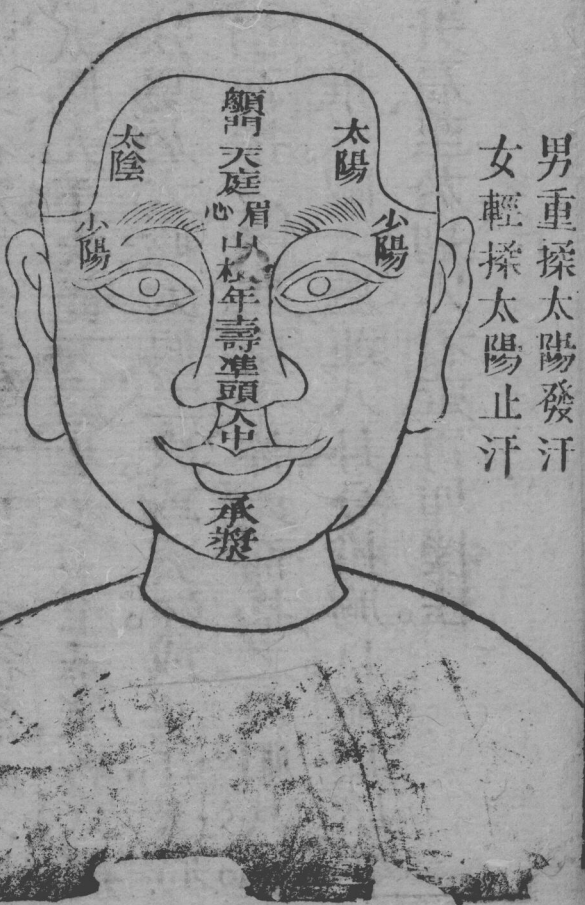 男重揉太陽發汗
女輕揉太陽止汗
太陽
少陽
顖門
天庭
眉心
山根
年壽
準頭
人中
承漿
太陰
少陽